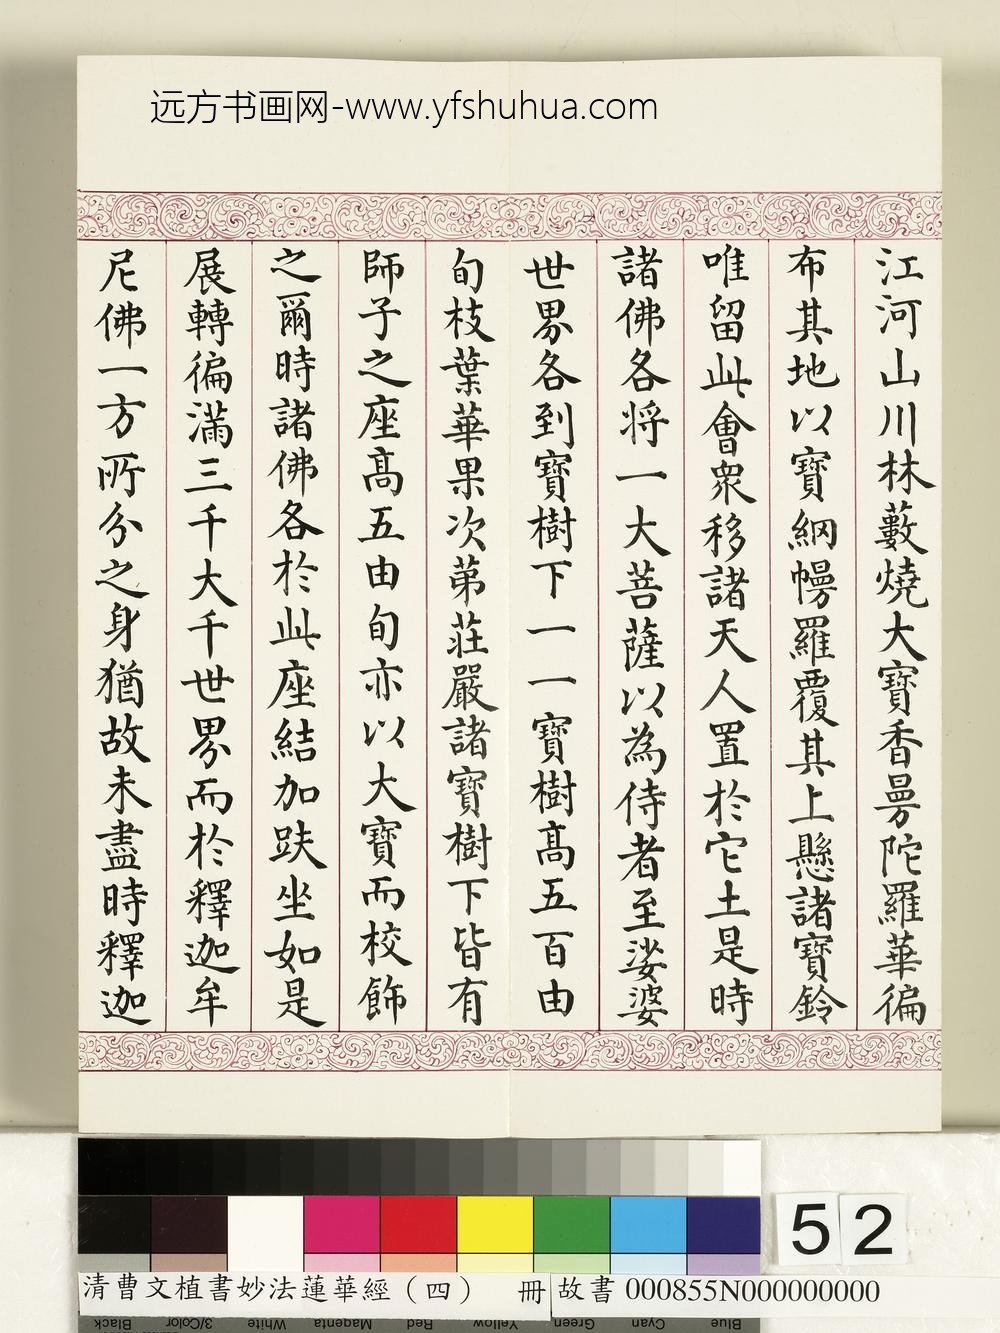 远方书画网-www.yfshuhua.com
江河山川林藪燒大寶香曼陀羅華徧
布其地以寶網幔羅覆其上懸諸寶鈴
唯留此會眾移諸天人置於它土是時
諸佛各將一大菩薩以為侍者至娑婆
世界各到寶樹下一一寶樹高五百由
旬枝葉華果次第莊嚴諸寶樹下皆有
師子之座高五由旬亦以大寶而校飾
之爾時諸佛各於此座結加趺坐如是
展轉徧滿三千大千世界而於釋迦牟
尼佛一方所分之身猶故未盡時釋迦
52
清曹文植書妙法蓮華經（四） 冊 故書 000855N000000000
Black 3/Color White Magenta Red Yellow Green Cyan Blue